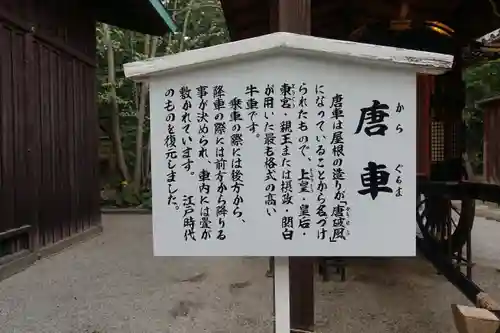 唐車
から ぐるま
唐車は屋根の造りが「唐破風」
になっていることから名づけ
られたもので、上皇・皇后・
東宮・親王または摂政・関白
が用いた最も格式の高い
牛車です。
乗車の際には後方から、
降車の際には前方から降りる
事が決められ、車内には畳が
敷かれています。江戸時代
のものを復元しました。